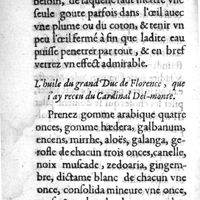 besoin, de laquelle faut mettre vne
seule goute parfois dans l'œil auec
vne plume ou du coton, & tenir vn
peu l'œil fermé à fin que ladite eau
puisse penetrer par tout, & en bref
verrez vn effect admirable.
L'huile du grand Duc de Florence, que
i'ay receu du Cardinal Del-monte.
Prenez gomme arabique quatre
onces, gomme hædera, galbanum,
encens, mirrhe, aloës, galanga, ge-
rofle de chacun trois onces, canelle,
noix muscade, zedoaria, gingem-
bre, dictame blanc de chacun vne
once, consolida mineure vne once,